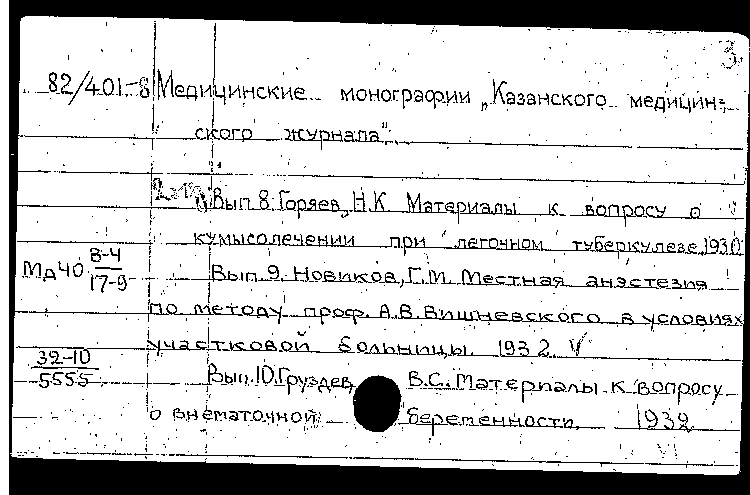 3.
82/401-8 Медицинские монографии „Казанского медицин-
ского журнала".
Вып. 8. Горяев, Н.К. Материалы к вопросу о
кумысолечении при легочном туберкулезе. 1930
Мд40 В-4/17-9 Вып. 9. Новиков, Г.И. Местная анэстезия
по методу проф. А.В. Вишневского в условиях
участковой больницы. 1932. V
32-10/5555 Вып. 10. Груздев, В.С. Материалы к вопросу
о внематочной беременности. 1932